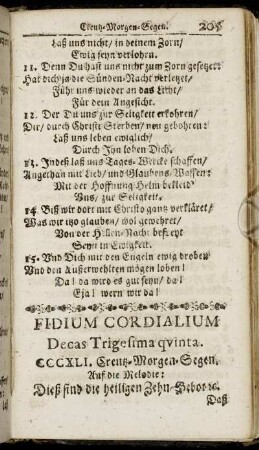 Creutz-Morgen-Segen. 205
Laß uns nicht/ in deinem Zorn/
Ewig seyn verlohrn.
11. Denn Du hast uns nicht zum Zorn gesetzet:
Hat dich ja die Sünden-Nacht verletzet/
Führ uns wieder an das Licht/
Für dein Angesicht.
12. Der Du uns zur Seligkeit erkohren/
Dir/ durch Christi Sterben/ neu gebohren:
Laß uns leben ewiglich/
Durch Jhn loben Dich.
13. Jndeß laß uns Tages-Wercke schaffen/
Angethan mit Lieb/ und Glaubens-Waffen:
Mit der Hoffnung Helm bekleid
Uns/ zur Seligkeit.
14. Biß wir dort mit Christo gantz verkläret/
Was wir itzo glauben/ wol gewehret/
Von der Höllen-Nacht befreyt
Seyn in Ewigkeit.
15. Und Dich mit den Engeln ewig droben/
Und den Außerwehlten mögen loben!
Da! da wird es gut seyn/ da!
Eja! wern wir da!
FIDIUM CORDIALIUM
Decas Trigesima qvinta.
CCCXLI. Creutz-Morgen-Segen.
Auf die Melodie:
Dieß sind die heiligen Zehn-Gebot ꝛc.
Daß